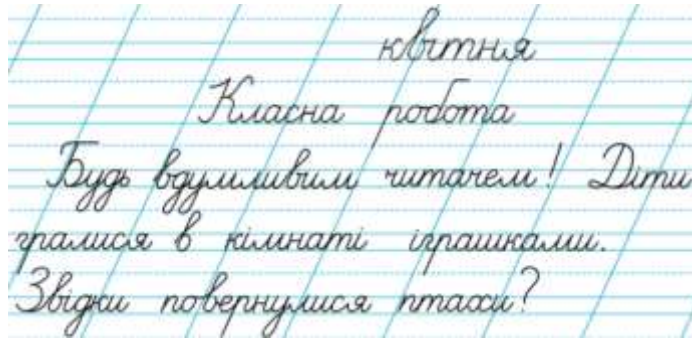 квітня
Класна робота
Будь вдумливим читачем! Діти
гралися в кімнаті іграшками.
Звідки повернулися птахи?